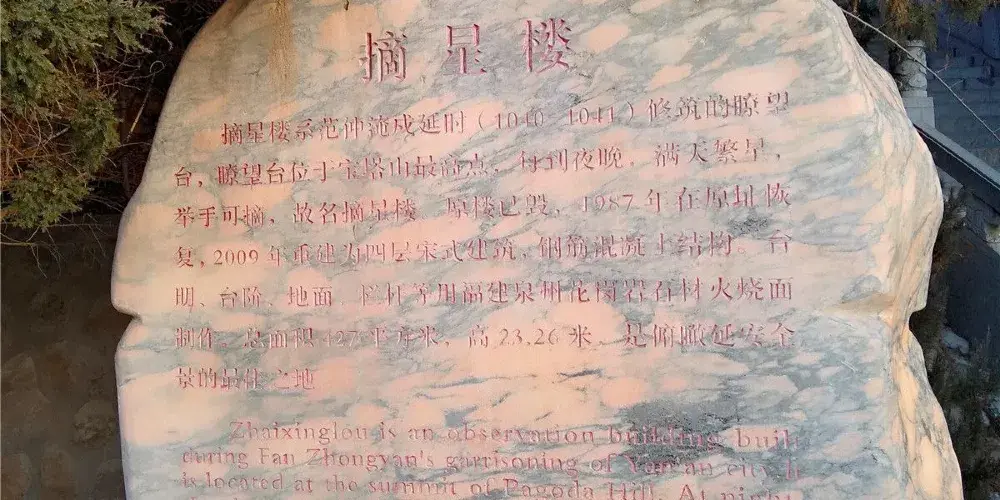 摘星楼
摘星楼系范仲淹戍延时（1040 1041）修筑的瞭望
台，瞭望台位于宝塔山最高点，每到夜晚，满天繁星，
举手可摘，故名摘星楼 原楼已毁，1987年在原址恢
复，2009年重建为四层宋式建筑，钢筋混凝土结构。台
明、台阶、地面、栏杆等用福建泉州花岗岩石材火烧面
制作。总面积427平方米，高23.26米，是俯瞰延安全
景的最佳之地
Zhaixinglou is an observation building buil
during Fan Zhongyan's garrisoning of Yan'an city. I
is located at the summit of Pagoda Hill. At night